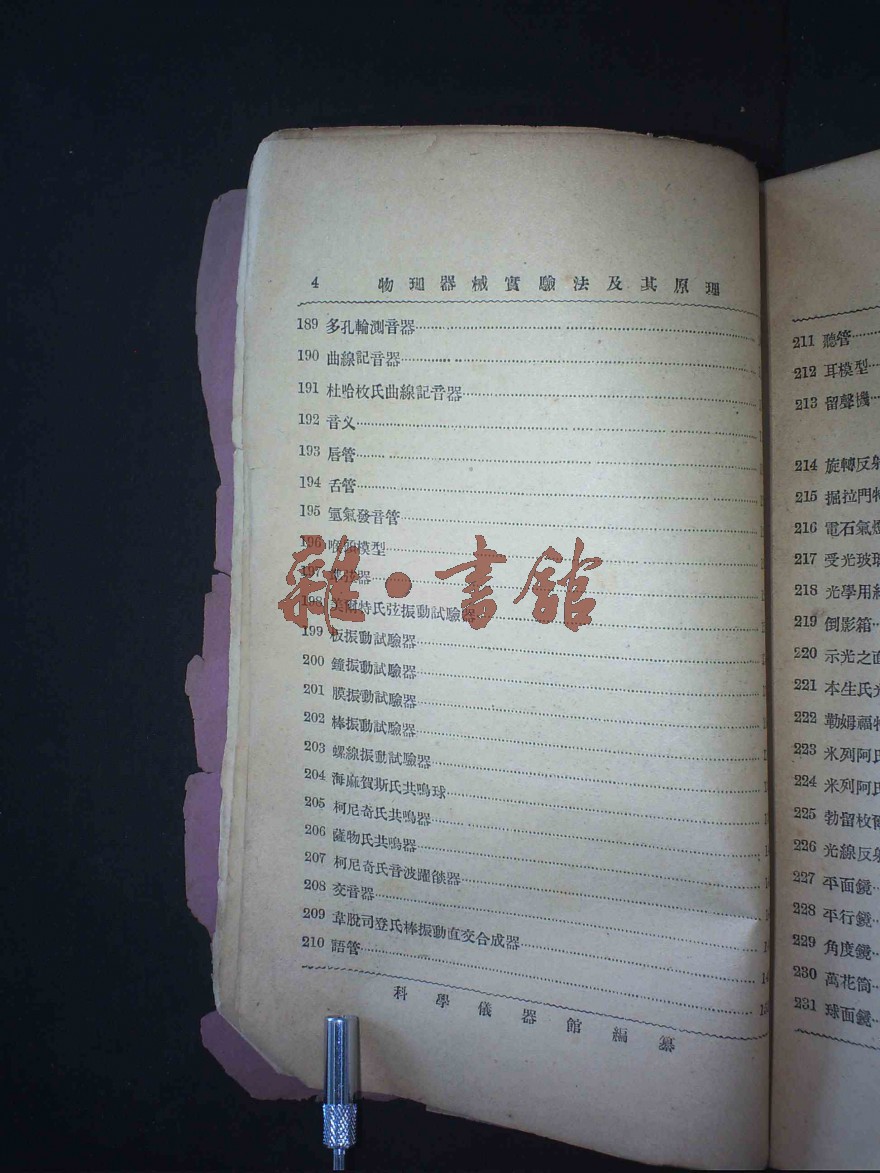 4 物理器械實驗法及其原理
189 多孔輪測音器
190 曲線記音器
191 杜哈枚氏曲線記音器
192 音义
193 唇管
194 舌管
195 氫氣發音管
196 喉頭模型
197 器
198 美爾特氏弦振動試驗器
199 板振動試驗器
200 鐘振動試驗器
201 膜振動試驗器
202 棒振動試驗器
203 螺線振動試驗器
204 海麻賀斯氏共鳴球
205 柯尼奇氏共鳴器
206 薩物氏共鳴器
207 柯尼奇氏音波躍燄器
208 交音器
209 韋脫司登氏棒振動直交合成器
210 語管
科學儀器館編纂
211 聽管
212 耳模型
213 留聲機
214 旋轉反射
215 掘拉門特
216 電石氣燈
217 受光玻璃
218 光學用
219 倒影箱
220 示光之直
221 本生氏光
222 勒姆福特
223 米列阿氏
224 米列阿氏
225 勃留枚
226 光線反射
227 平面鏡
228 平行鏡
229 角度鏡
230 萬花筒
231 球面鏡
雜·書館